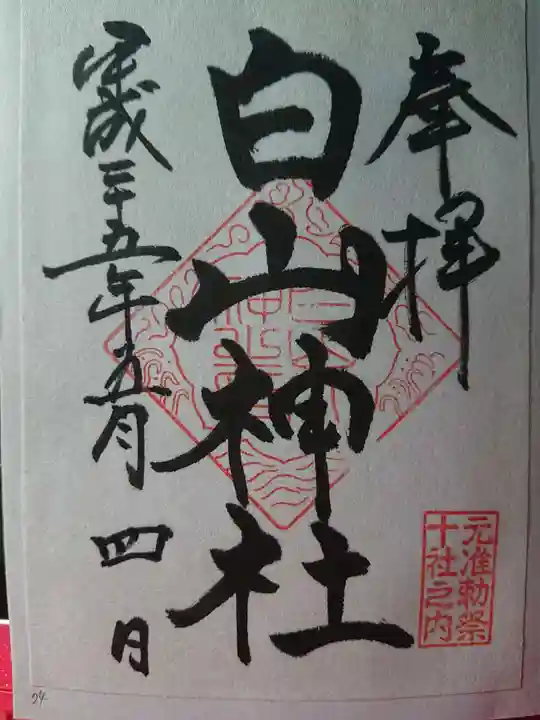 奉拝
白山神社
平成二十五年五月四日
元准勅祭
十社之内
24